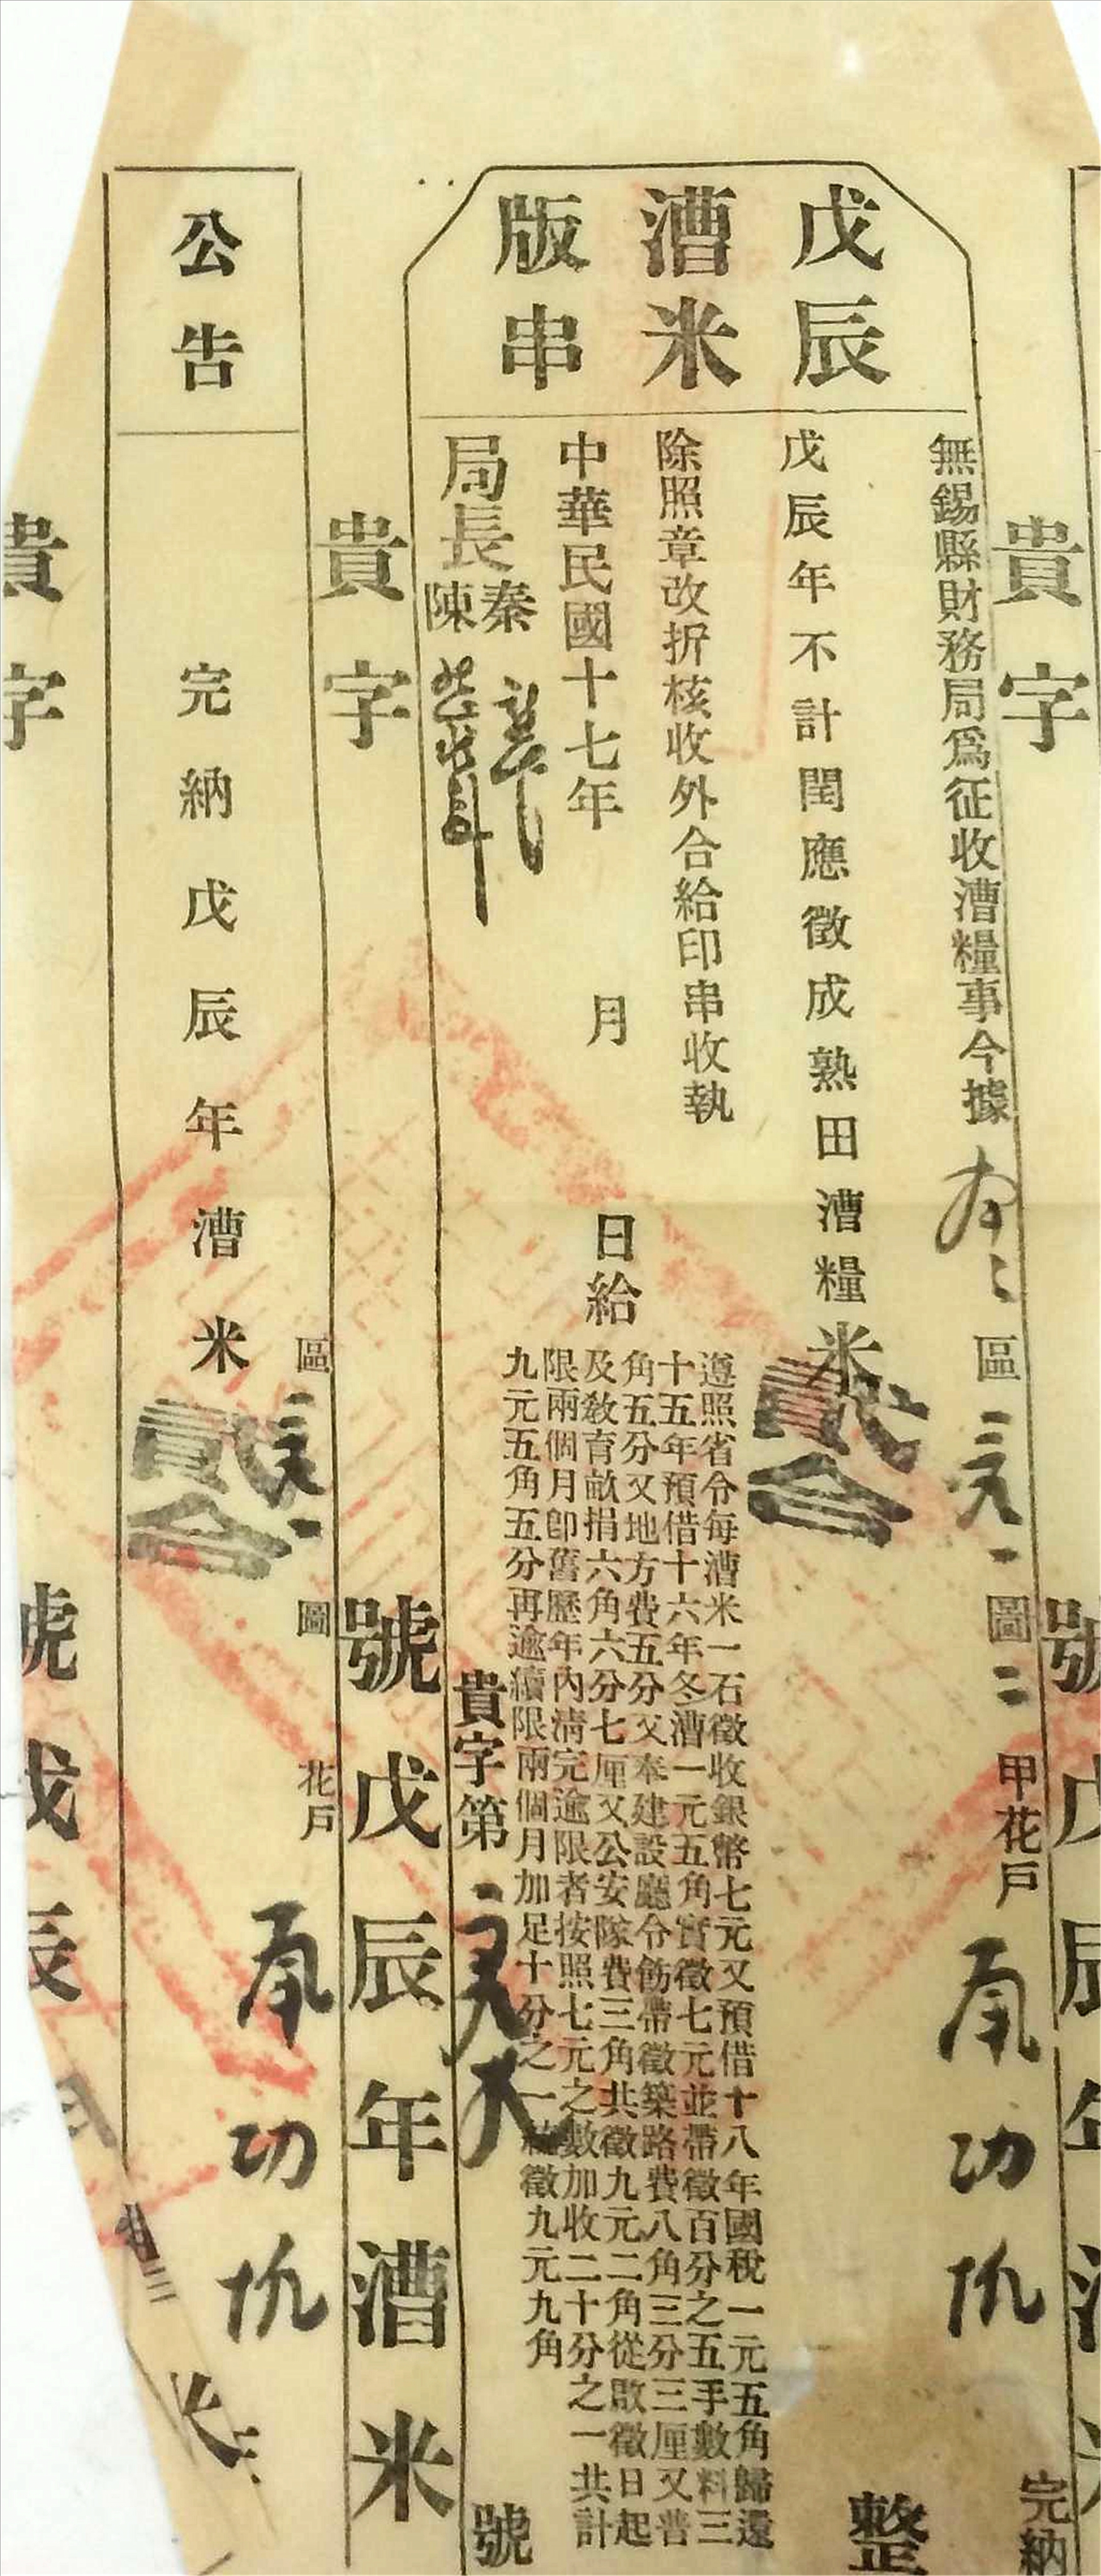 戊辰
漕米
版串
無錫縣財務局爲征收漕糧事今據
區
圖
甲花戶
完納
戊辰年不計閏應徵成熟田漕糧米
貳合
整
除照章改折核收外合給印串收執
中華民國十七年 月 日給
局長
秦
陳
遵照省令每漕米一石徵收銀幣七元又預借十八年國稅一元五角歸還
十五年預借十六年冬漕一元五角實徵七元並帶徵百分之五手數料三
角五分又地方費五分又奉建設廳令飭帶徵築路費八角三分三厘又普
及教育畝捐六角六分七厘又公安隊費三角共徵九元二角從啟徵日起
限兩個月卽舊歷年內清完逾限者按照七元之數加收二十分之一共計
九元五角五分再逾續限兩個月加足十分之一統徵九元九角
貴字第
號
貴字
號戊辰年漕米
貴字
號戊辰年漕米
公告
完納戊辰年漕米
貳合
區
圖
花戶
貴字
號戊辰